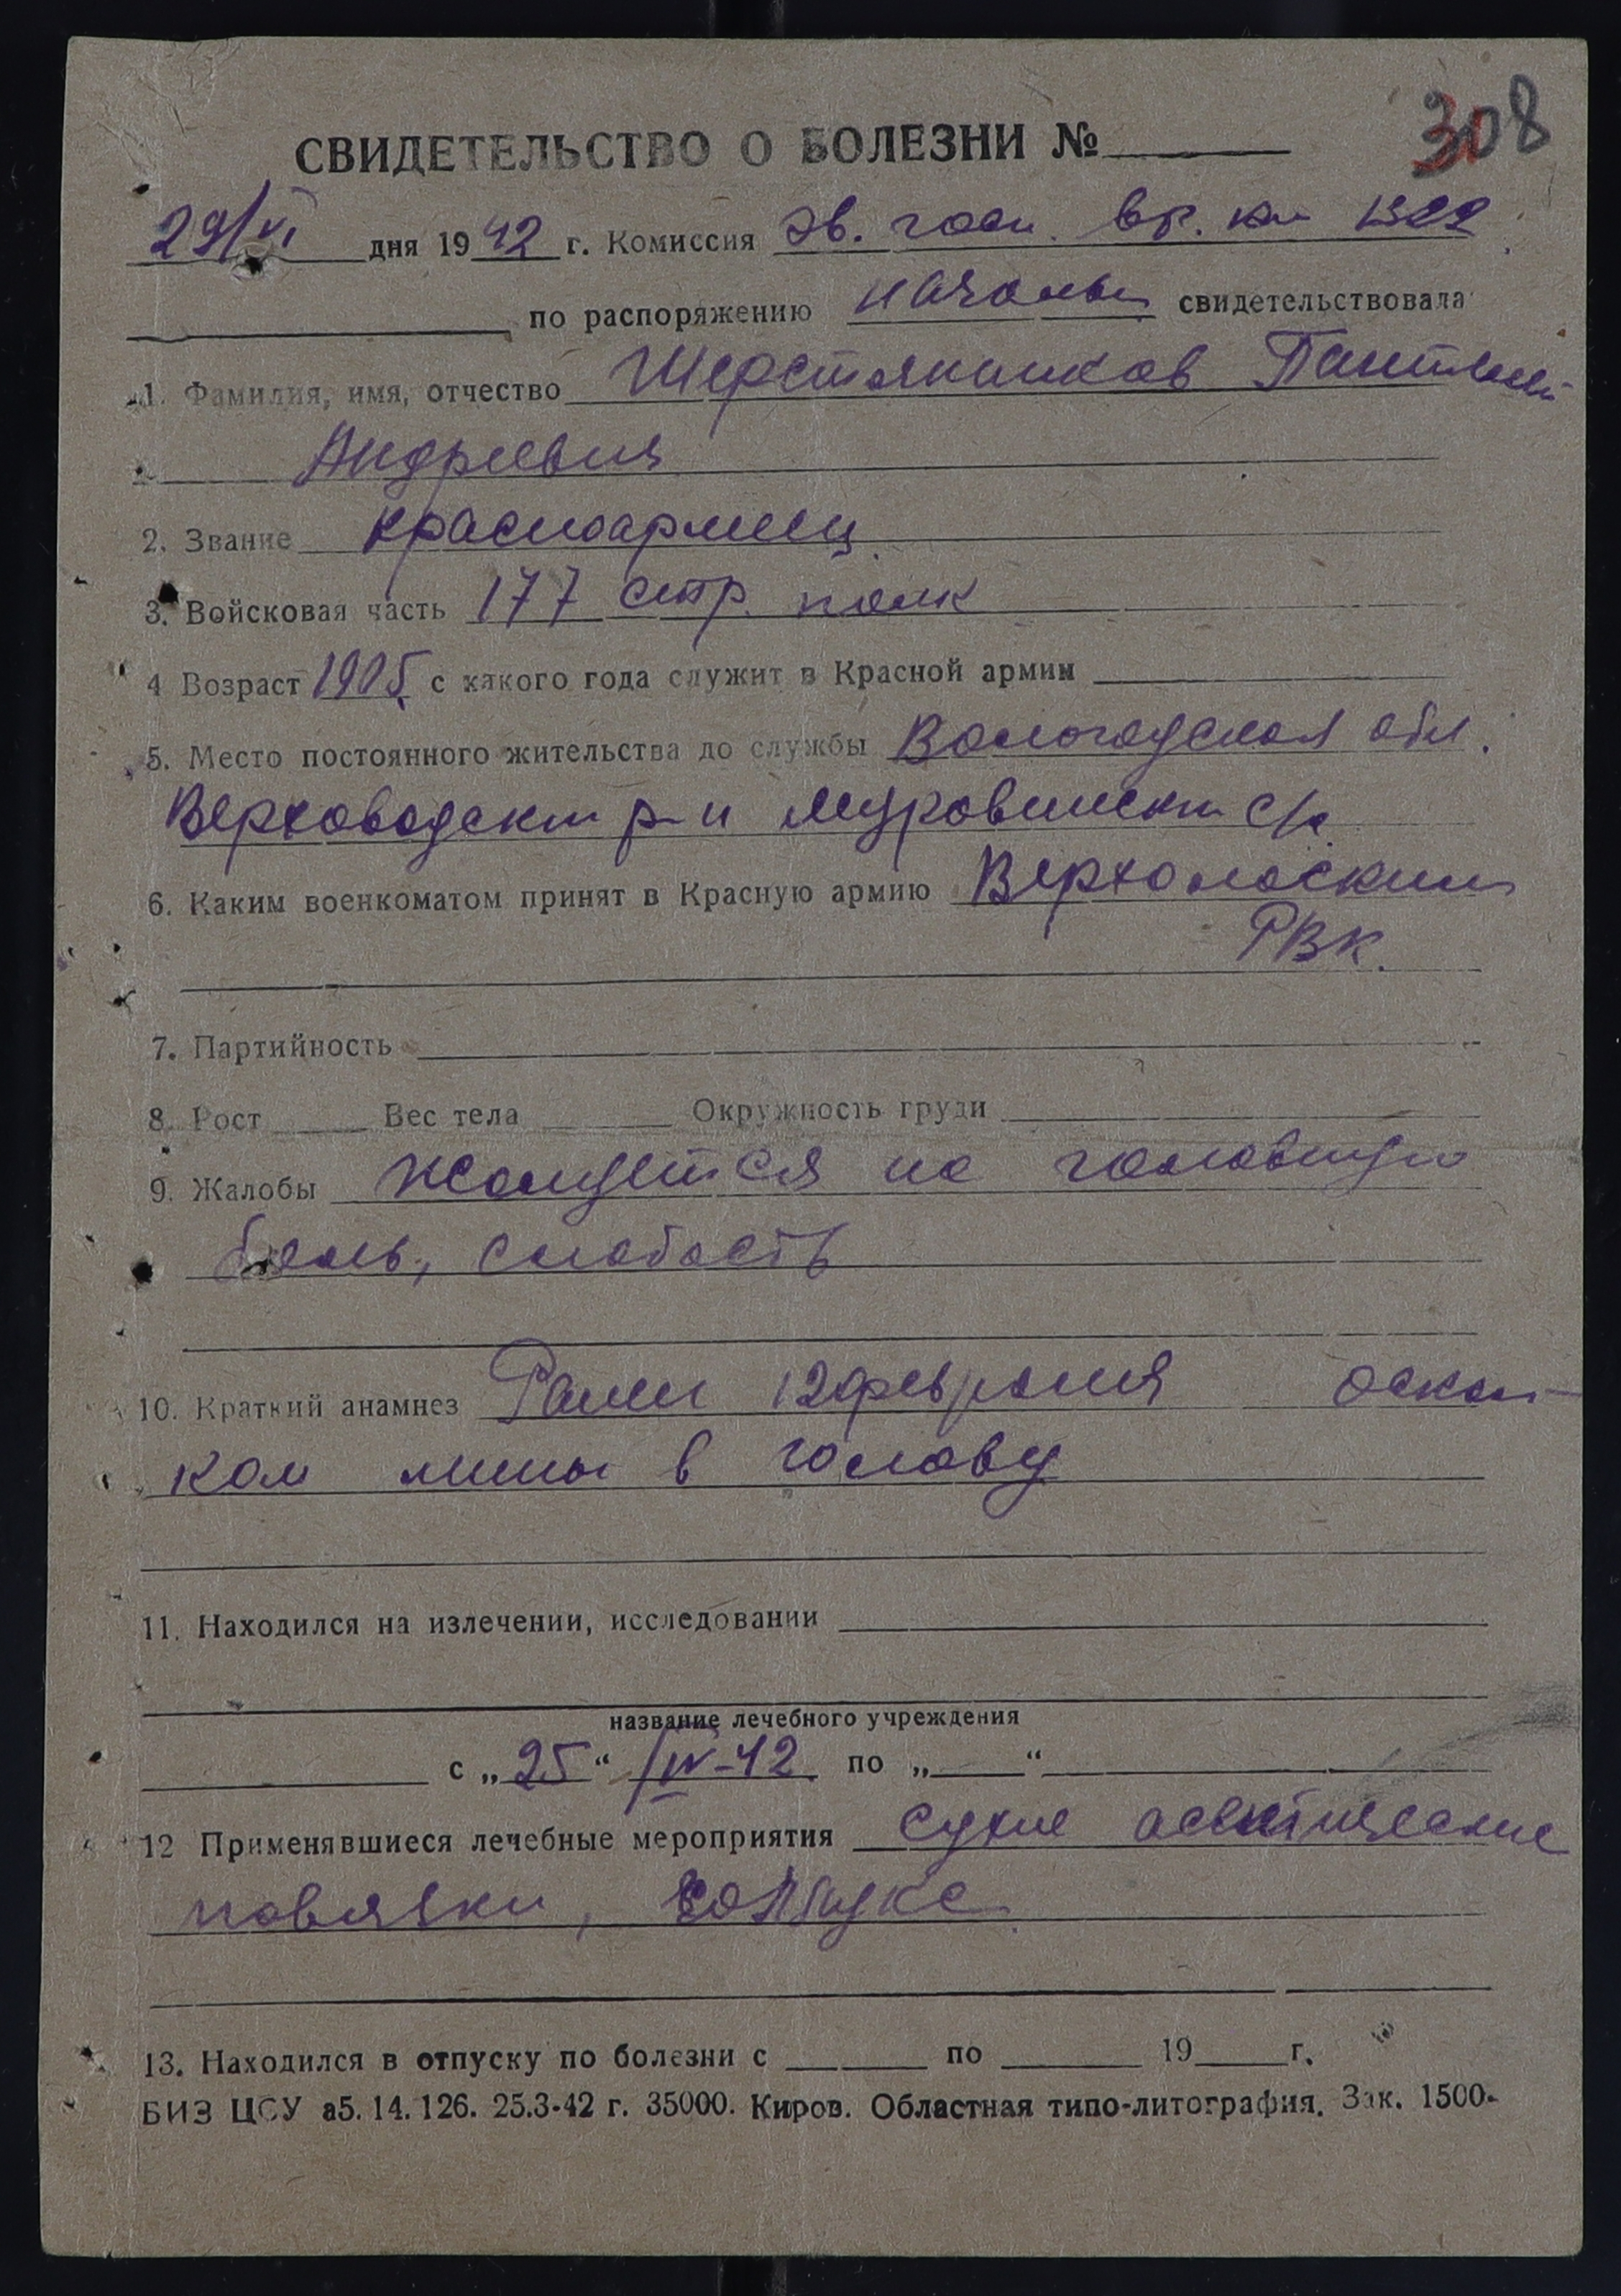 308
СВИДЕТЕЛЬСТВО О БОЛЕЗНИ №
29/VI дня 1942 г. Комиссия эв. госп. вр. ком 1322
по распоряжению началь свидетельствовала
1. Фамилия, имя, отчество Шерстянников Пантелей
Андреевич
2. Звание красноармеец
3. Войсковая часть 177 стр. полк
4 Возраст 1905 с какого года служит в Красной армии
5. Место постоянного жительства до службы Вологодская обл.
р-н с/с
6. Каким военкоматом принят в Красную армию
РВК.
7. Партийность
8. Рост Вес тела Окружность груди
9. Жалобы Жалуется на головную
боль, слабость
10. Краткий анамнез Ранен 12 февраля оскол-
ком мины в голову
11. Находился на излечении, исследовании
название лечебного учреждения
с „25“ /IV-42 по „ “
12 Применявшиеся лечебные мероприятия сухие асептические
повязки,
13. Находился в отпуску по болезни с по 19 г.
БИЗ ЦСУ а5. 14. 126. 25.3-42 г. 35000. Киров. Областная типо-литография. Зак. 1500-